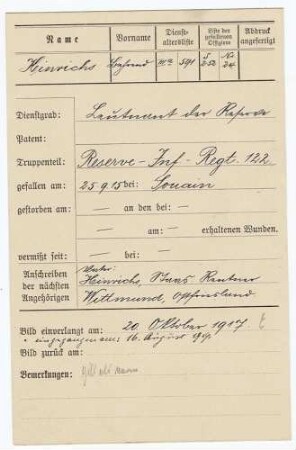 Name Vorname Dienst-altersliste Liste der gefallenen Offiziere Abdruck angefertigt
Hinrichs 591
Dienstgrad: Leutnant der Reserve
Patent:
Truppenteil: Reserve-Inf-Regt. 122.
gefallen am: 25.9.15 bei: Souain
gestorben am: — an den bei: —
— am: — erhaltenen Wunden.
vermißt seit: — bei: —
Vater:
Anschreiben der nächsten Angehörigen
Hinrichs, Rentner
Wittmund, Ostfriesland
Bild einverlangt am: 20. Oktober 1917
" eingegangen am: 16. August
Bild zurück am:
Bemerkungen: